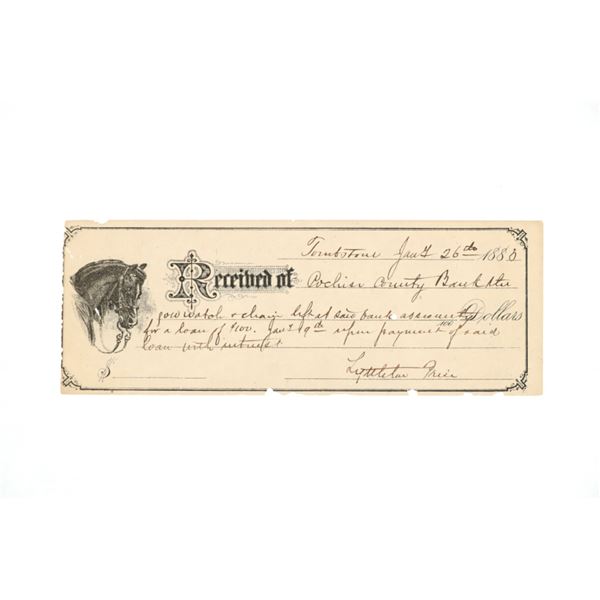 Tombstone Jany 26th 1883
Received of Cochise County Bank the
watch & chain left at said bank as security Dollars
100
for a loan of $100. Jany 9th upon payment of said
loan with interest
$
Lyttleton Price